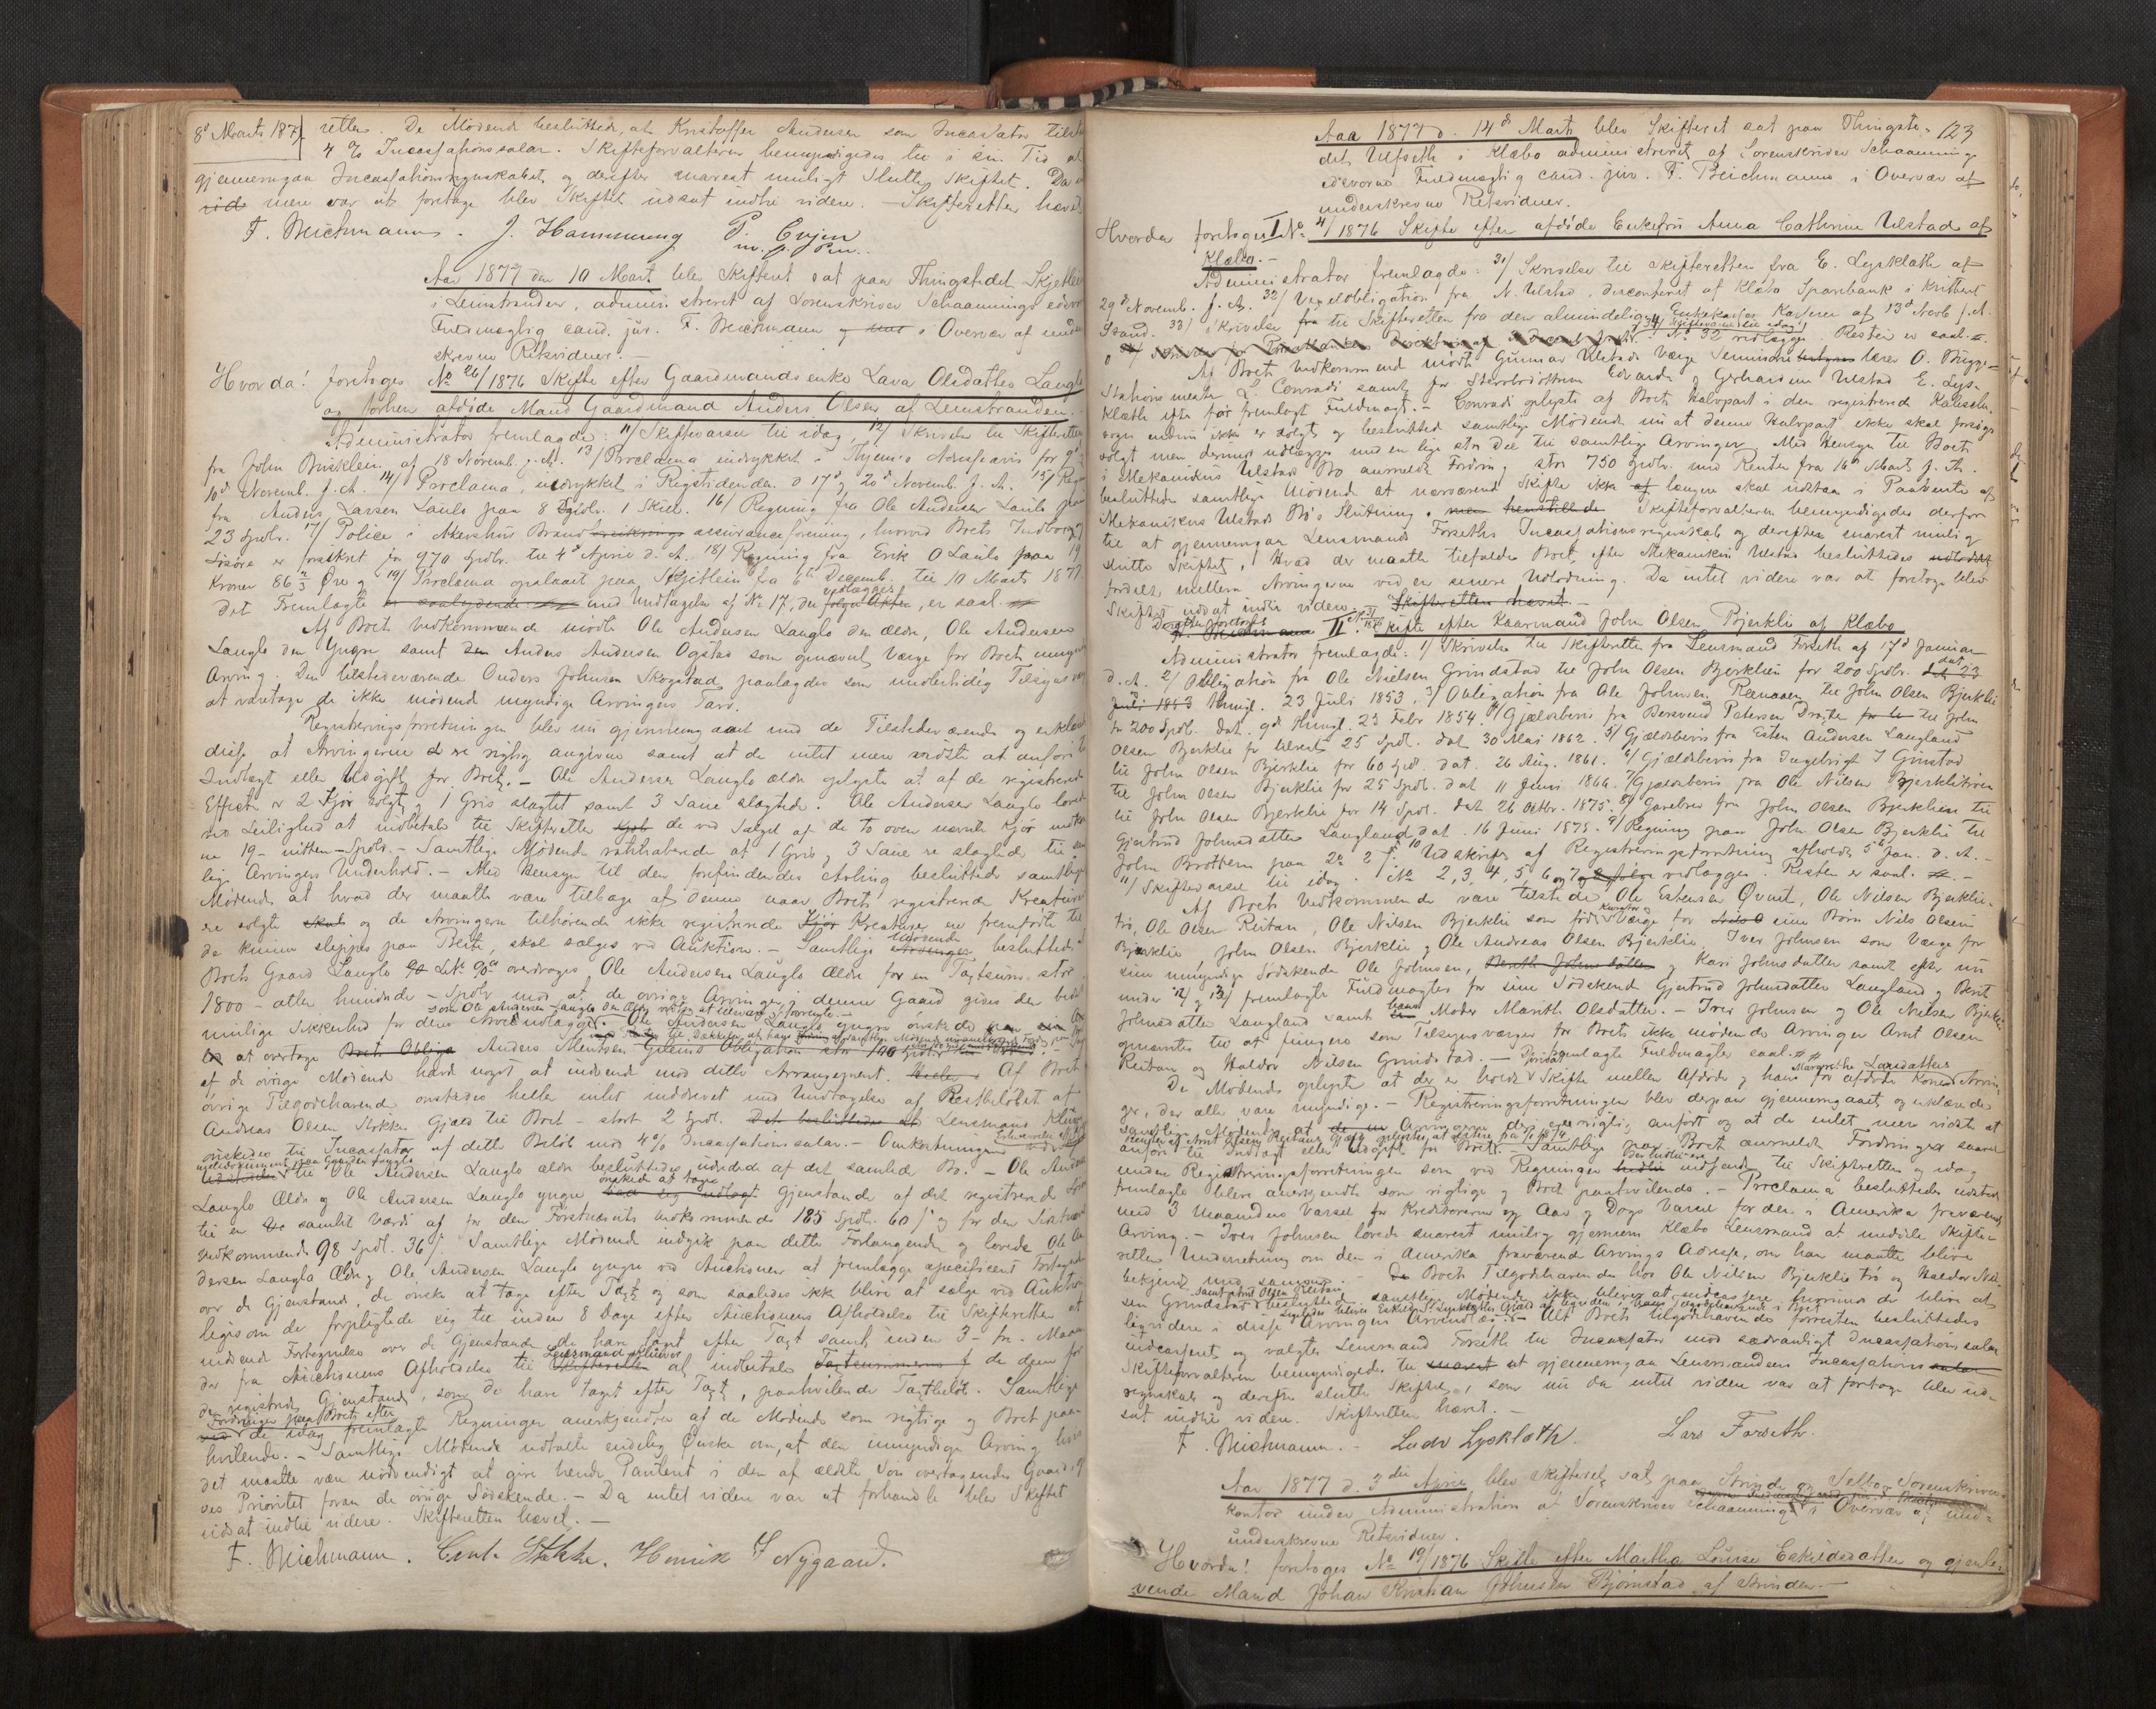 8d Marts 187
retten. De Mødende besluttede, at Kristoffer Andersen som Incassator
4 % Incassationssalær. Skifteforvalteren bemyndigedes til i sin Tid at
gjennemgaa Incassationsregnskabet og derefter snarest muligt slutte Skiftet. Da
mere var at foretage blev Skiftet udsat indtil videre. — Skifteretten hævet
F. Meichmann. J. Hammung P. Evjen
m. p. Pen.
Aar 1877 den 10 Mart. blev Skifteret sat paa Thingstedet Skjetlein
i Leinstranden, administreret af Sorenskriver Schaannings edsvor
Fuldmægtig cand. jur. F. Meichmann og i Overvær af under
skrevne Retsvidner. —
Hvorda! foretoges No 26/1876 Skifte efter Gaardmandsenke Lava Olsdatter Langlo
og forhen afdøde Mand Gaardmand Anders Olsen af Leinstranden.
Administrator fremlagde: 11/ Skiftevarsel til idag, 12/ Skrivelse til Skifteretten
fra John Brusklein af 18 Novemb. f. A. 13/ Proclama indrykket i Thjems Adresseavis for 9d
10d Novemb. f. A. 14/ Proclama, indrykket i Rigstidenden d 17d og 20d Novemb. f. A. 15/ Regn
fra Anders Larsen Laulo paa 8 Spdlr. 1 Skill. 16/ Regning fra Ole Andersen Laulo paa
23 Spdlr. 17/ Police i Akershus Brand assuranceforening, hvorved Boets Indbo og
Løsøre er forsikret for 970 Spdlr. til 4d April d. A. 18/ Regning fra Erik O Laulo paa 19
Kroner 86 2/3 Øre og 19/ Proclama opslaaet paa Skjetlein fra 6te Decemb. til 10 Marts 1877.
vedlægges
Det Fremlagte med Undtagelse af No 17, der følger Akten, er saal.
Af Boets Vedkommende mødte Ole Andersen Langlo den ældre, Ole Andersen
Langlo den Yngre samt Anders Andersen Øgstad som opnævnt Værge for Boets umynd
Arving. Den tilstedeværende Anders Johnsen Skogstad paalagdes som midlertidig Tilsyns
at varetage de ikke mødende myndige Arvingers Tarv.
Registreringsforretningen blev nu gjennemgaaet med de Tilstedeværende og erklæ
disse at Arvingerne ere rigtig angivne samt at de intet mere vidste at anføre
Indtægt eller Udgift for Boet. — Ole Andersen Langlo ældre oplyste at af de registrerede
Effecter er 2 Kjør solgt og 1 Gris slagtet samt 3 Saue slagtede. Ole Andersen Langlo lovede
ved Leilighed at indbetale til Skifteretten de ved Salget af de to oven nævnte Kjør
19 – nitten – Spdlr. — Samtlige Mødende ratihaberede at 1 Gris og 3 Saue ere slagtede til
lige Arvingers Underhold. — Med Hensyn til den forefindendes Avling besluttede samtlige
Mødende at hvad der maatte være tilbage af denne naar Boets registrerede Kreaturer
ere solgte og de Arvingerne tilhørende ikke registrerede Kreaturer ere fremfødte til
de kunne slippes paa Beite, skal sælges ved Auktion. — Samtlige Mødende besluttede
Boets Gaard Langlo LNo 90a overdrages Ole Andersen Langlo Ældre for en Taxtsum stor
1800 – atten hundrede – Spdlr mod at de øvrige Arvinger i denne Gaard gives den bedst
som Ole Andersen Langlo den Ældre vedtog at udevære forrente. —
mulige Sikkerhed for deres Arveudlæg. Ole Andersen Langlo yngre ønskede
at overtage Anders Mentsen Gilems Obligation stor 100 Spdlr.
af de øvrige Mødende havde noget at indvende mod dette Arrangement. Af Boets
øvrige Tilgodehavende ønskedes heller intet inddrevet med Undtagelse af Restbeløbet af
Andreas Olsen Stokkes Gjæld til Boet – stort 2 Spdl. Lensmand Klüver
ønskedes til Incassator af dette Beløb mod 4 % Incassationssalær. — Omkostningerne ved
til Ole Andersen Langlo ældre besluttedes udredede af det samlede Bo. — Ole Andersen
ønskede at tage
Langlo Ældre og Ole Andersen Langlo yngre Gjenstande af det registrerede
til en samlet Værdi af for den Førstnævntes Vedkommende 185 Spdl. 60 ß og for den Sidstnævnte
Vedkommende 98 Spdl. 36 ß. Samtlige Mødende indgik paa dette Forlangende og lovede Ole An
dersen Langlo Ældre og Ole Andersen Langlo yngre ved Auctionen at fremlægge specificeret Fortegnelse
over de Gjenstande, de ønske at tage efter Taxt og som saaledes ikke blive at sælge ved Auktion
ligesom de forpligtede sig til inden 8 Dage efter Auctionens Afholdelse til Skifteretten at
indsende Fortegnelse over de Gjenstande de have taget efter Taxt samt inden 3 – tre – Maane
Lensmand Klüver
der fra Auctionens Afholdelse til at indbetale de dem for
de registrerede Gjenstande, som de have taget efter Taxt, paahvilende Taxtbeløb. Samtlige
Fordringer paa Boet efter
de idag fremlagte Regninger anerkjendtes af de Mødende som rigtige og Boet paa-
hvilende. — Samtlige Mødende udtalte endelig Ønske om, at den umyndige Arving hvis
det maatte være nødvendigt at give hende Panteret i den af ældste Søn overtagendes Gaard, gi
ves Prioritet foran de øvrige Sødskende. — Da intet videre var at forhandle blev Skiftet
udsat indtil videre. Skifteretten hævet. —
F. Meichmann. Henrik J Nygaard.
Aar 1877 d. 14d Marts blev Skifteret sat paa Thingste- 123
det Ulfseth i Klæbo administreret af Sorenskriver Schaannings
edsvorne Fuldmægtig cand. jur. F. Meichmann i Overvær af
underskrevne Retsvidner.
Hvorda foretoges I No 4/1876 Skifte efter afdøde Enkefru Anna Cathrine Ulstad af
Klæbo. —
Administrator fremlagde: 31/ Skrivelse til Skifteretten fra E. Lysklæth af
29d Novemb. f. A. 32/ Vexelobligation fra N. Ulstad, disconteret af Klæbo Sparebank i Kritherts
Stand. 33/ Skrivelse til Skifteretten fra den almindelige Enkekasses Kasserer af 13d Novb f. A.
34/ Skiftevarsel til idag
No 32 vedlægges. Resten er saal.
Af Boets Vedkommend mødte Gunnar Ulstads Værge Seminarielærer O. Bügge
Stationsmester L. Conradi samt for Stervbodøttrene Edvarda og Gerhardine Ulstad E. Lys-
klæth efter før fremlagt Fuldmagt. — Conradi oplyste at Boets Halvpart i den registrerede Kalesche-
vogn endnu ikke er solgt og besluttede samtlige Mødende nu at denne Halvpart ikke skal forsøges
solgt men derimod udlægges med en lige stor Del til samtlige Arvinger. Med Hensyn til Boets
i Mekanikus Ulstads Bo anmeldte Fordring stor 750 Spdlr. med Renter fra 16d Marts f. A.
besluttede samtlige Mødende at nærværende Skifte ikke længere skal udstaa i Paavente af
Mekanikus Ulstads Bo's Slutning. Skifteforvalteren bemyndigedes derfor
til at gjennemgaa Lensmand Forseths Incassationsregnskab og derefter snarest mulig
slutte Skiftet. Hvad der maatte tilfalde Boet efter Mekanikus Ulstad besluttedes
fordelt mellem Arvingerne ved en senere Udlodning. Da intet videre var at foretage blev
Skiftet udsat indtil videre. Skifteretten hævet. —
Derefter foretoges II. No 31/1876 Skifte efter Kaarmand John Olsen Bjerklie af Klæbo
Administrator fremlagde: 1/ Skrivelse til Skifteretten fra Lensmand Forseth af 17d Januar
d. A. 2/ Obligation fra Ole Nielsen Grindstad til John Olsen Bjerklie for 200 Spdlr. dat 23
Juli 1853 thingl. 23 Juli 1853. 3/ Obligation fra Ole Johnsen Rønaasen til John Olsen Bjerklie
for 200 Spdl. dat. og thingl. 23 Febr 1854. 4/ Gjældsbevis fra Bersvend Petersen Dragsten til John
Olsen Bjerklie for tilrest 25 Spdl. dat 30 Mai 1862. 5/ Gjældsbevis fra Esten Andersen Langland
til John Olsen Bjerklie for 60 Spdl. dat. 26 Aug. 1861. 6/ Gjældsbevis fra Ingebrigt J Grinstad
til John Olsen Bjerklie for 25 Spdl. dat 11 Juni 1866. 7/ Gjældsbevis fra Ole Nilsen Bjerklitrøen
til John Olsen Bjerklie for 14 Spdl. dat 26 Octbr. 1875. 8/ Gavebrev fra John Olsen Bjerklien til
Gjertrud Johnsdatter Langland dat. 16 Juni 1875. 9/ Regning paa John Olsen Bjerklie til
John Brøttem paa 2 2 ß. 10 Udskrift af Registreringsforretning afholdt 5te Jan. d. A. —
11/ Skiftevarsel til idag. No 2, 3, 4, 5, 6 og 7 vedlægges. Resten er saal. —
Af Boets Vedkommende vare tilstede Ole Estensen Øvust, Ole Nilsen Bjerklie-
trø, Ole Olsen Reitan, Ole Nilsen Bjerklie som født Værge for sine Børn Nils Olsen
Bjerklie, John Olsen Bjerklie og Ole Andreas Olsen Bjerklie, Iver Johnsen som Værge for
sine umyndige Sødskende Ole Johnsen, Berith Johnsdatter og Kari Johnsdatter samt efter nu
under 12/ og 13/ fremlagte Fuldmagter for sine Sødskende Gjertrud Johnsdatter Langland og Berit
Johnsdatter Langland samt hans Moder Marith Olsdatter. — Iver Johnsen og Ole Nilsen Bjerklie
opnævntes til at fungere som Tilsynsværger for Boets ikke mødende Arvinger Arnt Olsen
Reitan og Haldor Nilsen Grindstad. — De fremlagte Fuldmagter saal.
Margrethe Larsdatters
De Mødende oplyste at der er holdt Skifte mellem Afdøde og hans før afdøde Kones Arvin-
ger, der alle vare myndige. — Registreringsforretningen blev derpaa gjennemgaaet og erklærede
samtlige Mødende at Arvingerne der ere rigtig anført og at de intet mere vidste at
anføre til Indtægt eller Udgift for Boet. — Samtlige paa Boet anmeldte Fordringer saavel
under Registreringsforretningen som ved Regninger indsendt til Skifteretten og idag
fremlagte bleve anerkjendte som rigtige og Boet paahvilende. — Proclama besluttedes udstedt
med 3 Maaneders Varsel for Kreditorerne og Aar og Dags Varsel for den i Amerika fraværende
Arving. — Iver Johnsen lovede snarest mulig gjennem Klæbo Lensmand at meddele Skifte-
retten Underretning om den i Amerika fraværende Arvings Adresse, om han maatte blive
bekjendt med samme. — Boets Tilgodehavende hos Ole Nilsen Bjerklie trø og Haldor Nil-
samt Arnt Olsen Reitan
sen Grindstad besluttede samtlige Mødende ikke bliver at indcassere, hvorimod de blive at
ligvidere i disse Arvingers Arveudlæg. — Alt Boets Tilgodehavende forresten besluttedes
indcasseret og valgtes Lensmand Forseth til Incassator mod sædvanligt Incassationssalær
Skifteforvalteren bemyndigedes til at gjennemgaa Lensmandens Incassations
regnskab og derefter slutte Skiftet, som nu da intet videre var at foretage blev ud-
sat indtil videre. Skifteretten hævet. —
F. Meichmann. — Ludv Lysklæth. Lars Forseth.
Aar 1877 d. 3die April blev Skifteret sat paa Strinde og Selbo Sorenskriver-
kontor under Administration af Sorenskriver Schaanning i Overvær af und-
underskrevne Retsvidner.
Hvorda! foretoges No 19/1876 Skifte efter Martha Louise Eskildsdatter og gjenle-
vende Mand Johan Kristian Johnsen Bjørnstad af Strinden. —